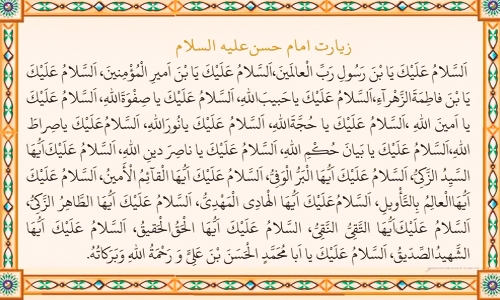 زیارت امام حسن علیه السلام
اَلسَّلامُ عَلَيْكَ يَا بْنَ رَسُولِ رَبِّ الْعالَمينَ،اَلسَّلامُ عَلَيْكَ يَا بْنَ اَميرِ الْمُؤْمِنينَ، اَلسَّلامُ عَلَيْكَ
يَا بْنَ فاطِمَةَ الزَّهْرآءِ،اَلسَّلامُ عَلَيْكَ ياحَبيبَ اللهِ، اَلسَّلامُ عَلَيْكَ يا صِفْوَةَ اللهِ، اَلسَّلامُ عَلَيْكَ
يا اَمينَ اللهِ ،اَلسَّلامُ عَلَيْكَ يا حُجَّةَ اللهِ، اَلسَّلامُ عَلَيْكَ يانُورَ اللهِ، اَلسَّلامُ عَلَيْكَ ياصِراطَ
اللهِ،اَلسَّلامُ عَلَيْكَ يا بَيانَ حُكْمِ اللهِ، اَلسَّلامُ عَلَيْكَ يا ناصِرَ دينِ اللهِ، اَلسَّلامُ عَلَيْكَ اَيُّهَا
السَّيِدُ الزَّكِىُّ، اَلسَّلامُ عَلَيْكَ اَيُّهَا الْبَرُّ الْوَفِىُّ، اَلسَّلامُ عَلَيْكَ اَيُّهَا الْقائِمُ الْاَمينُ، اَلسَّلامُ عَلَيْكَ
اَيُّهَا الْعالِمُ بِالتَّأْويلِ، اَلسَّلامُ عَلَيْكَ اَيُّهَا الْهادِى الْمَهْدِىُّ، اَلسَّلامُ عَلَيْكَ اَيُّهَا الطّاهِرُ الزَّكِىُّ،
اَلسَّلامُ عَلَيْكَ اَيُّهَا التَّقِىُّ النَّقِىُّ، اَلسَّلامُ عَلَيْكَ اَيُّهَا الْحَقُّ الْحَقيقُ، اَلسَّلامُ عَلَيْكَ اَيُّهَا
الشَّهيدُ الصِّدّيقُ، اَلسَّلامُ عَلَيْكَ يا اَبا مُحَمَّدٍ الْحَسَنَ بْنَ عَلِىٍّ وَ رَحْمَةُ اللهِ وَبَرَكاتُهُ.